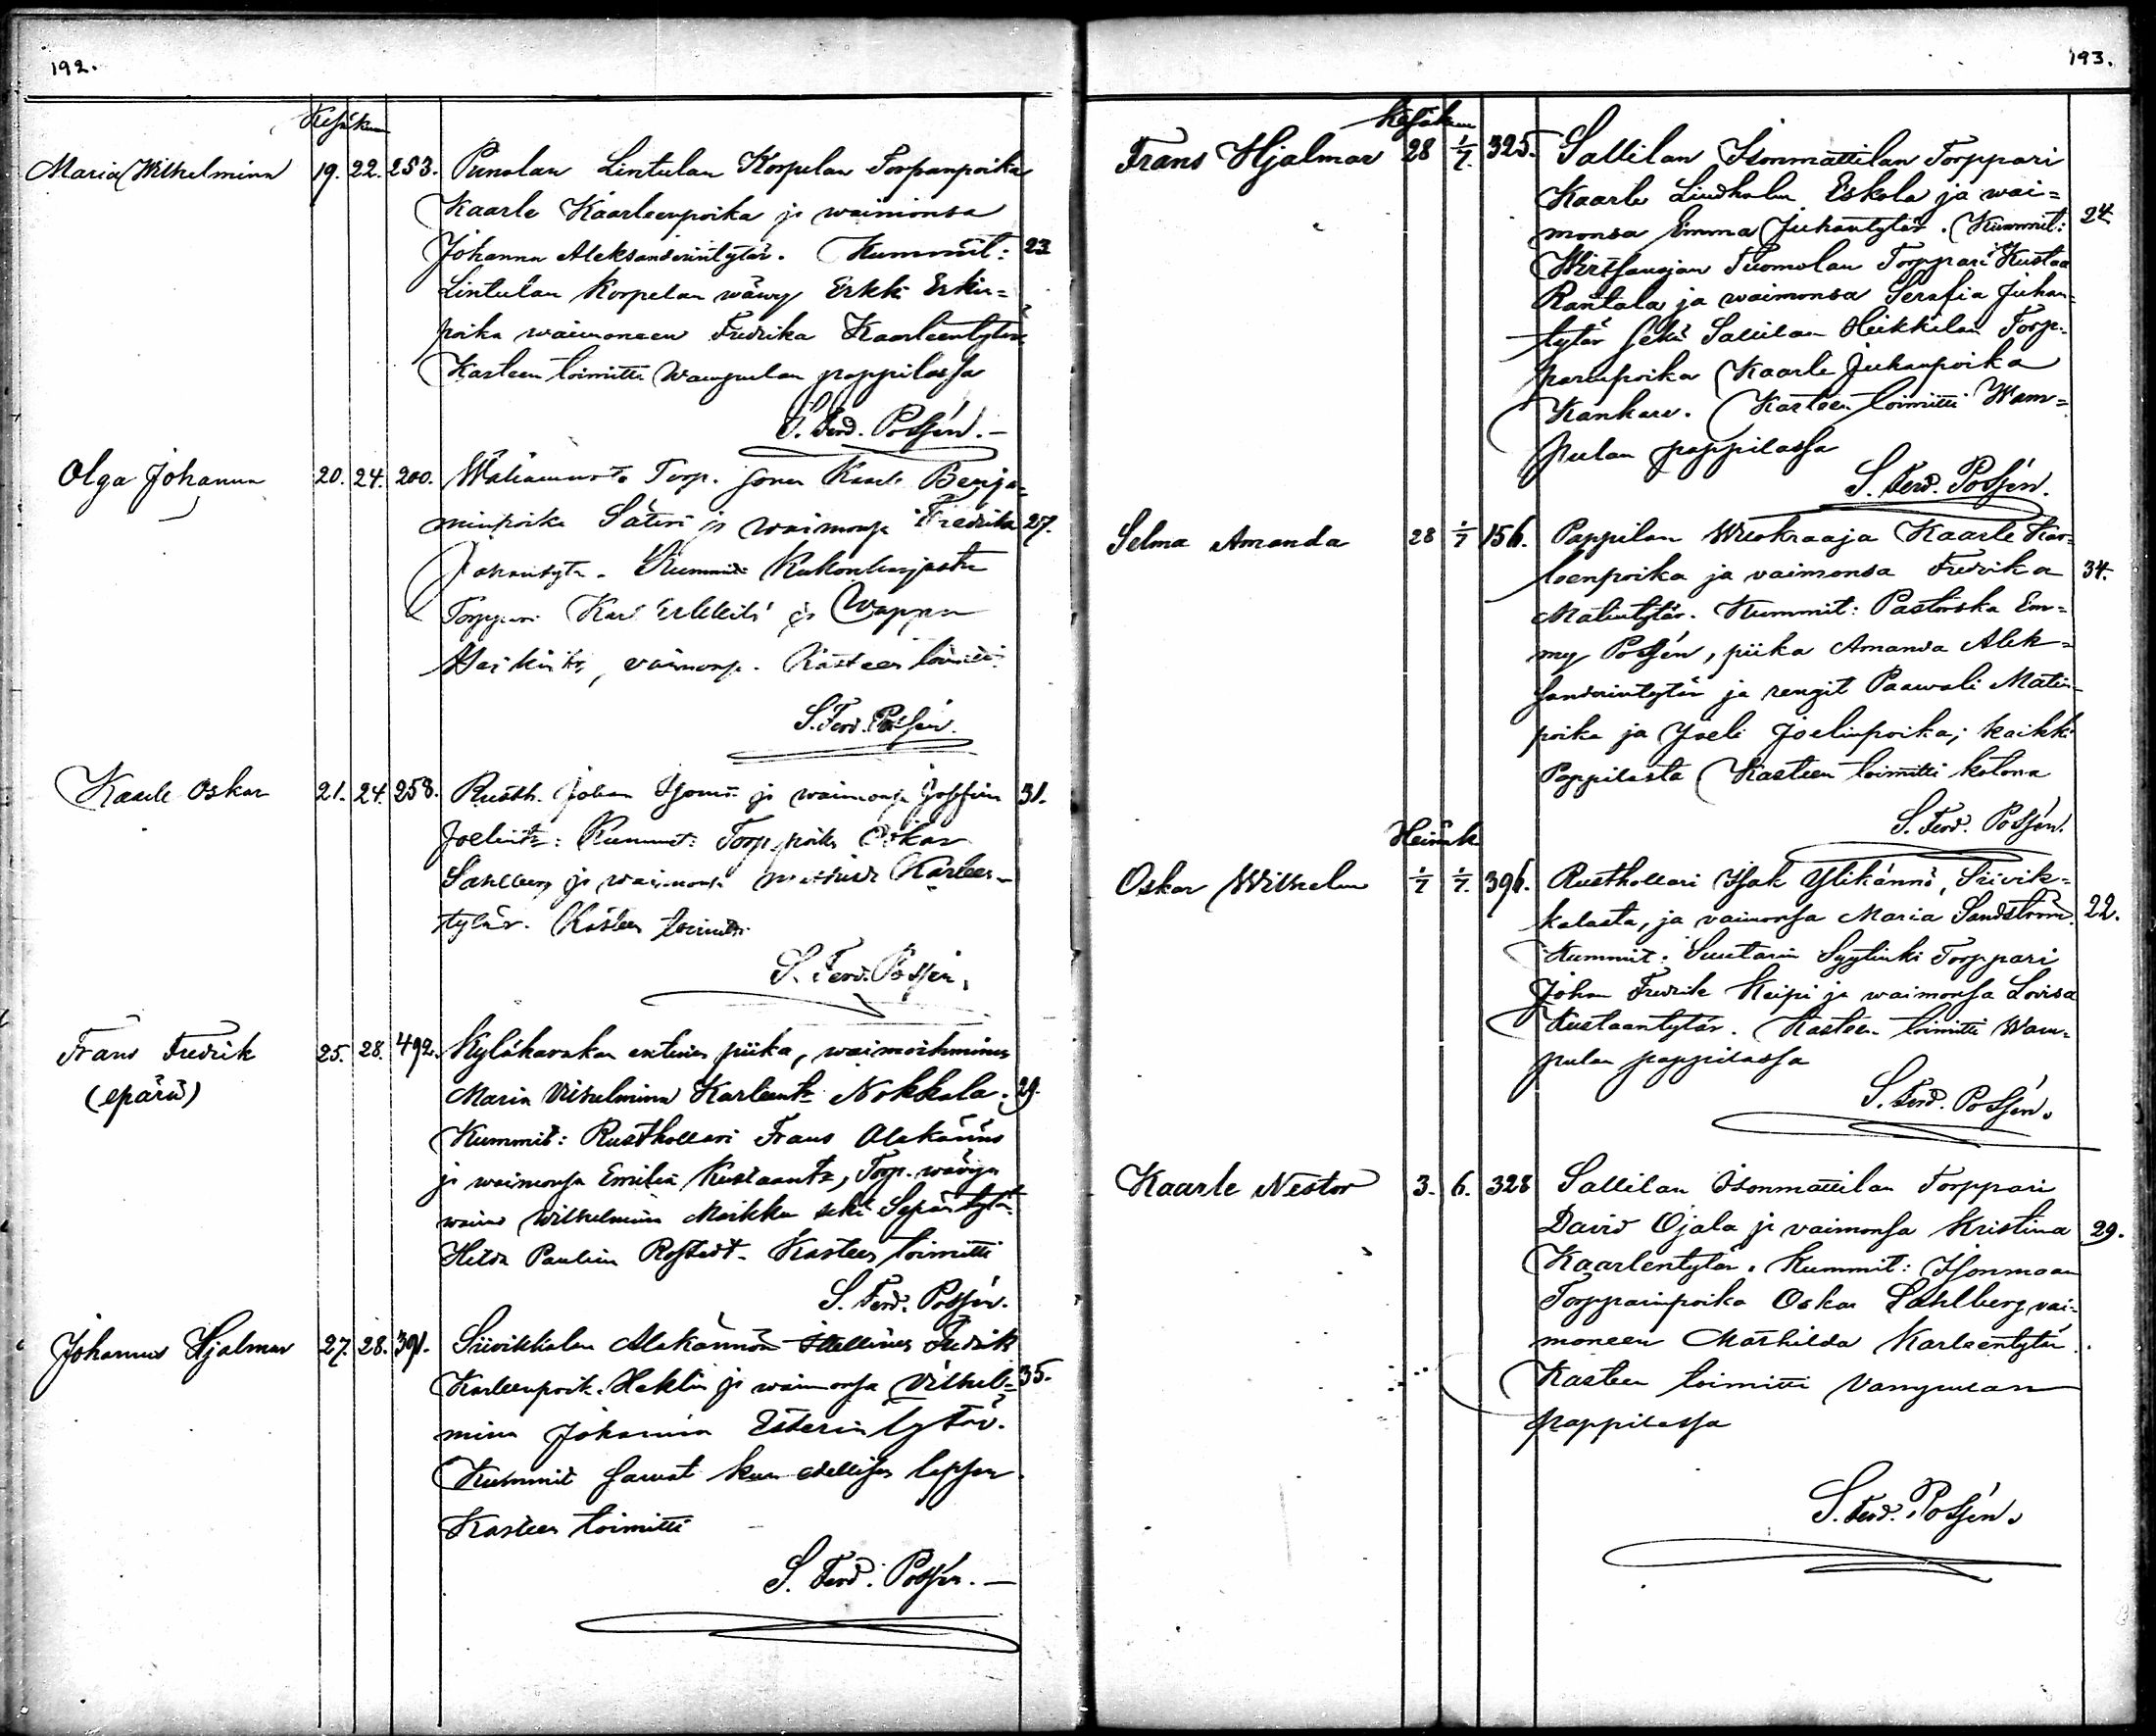 192.
Kesäkuu
Maria Wilhelmina 19. 22. 253. Punolan Lintulan Korpelan Torpanpoika
Kaarle Kaarleenpoika ja waimonsa
Johanna Aleksanderintytär. Kummit: 23
Lintulan Korpelan wäwy Erkki Erkin=
poika waimoneen Fredrika Kaarleentytär
Kasteen toimitti Wampulan pappilassa
S. Ferd. Possén.
Olga Johanna 20. 24. 200. Torp. Kaarle Benja=
minpoika Säteri ja waimonsa Fredrika 27.
Kummit Kukonharjasta
Torppari ja Wappu
waimonsa. Kasteen toimitti
S. Ferd. Possén.
Kaarle Oskar 21. 24. 258. Rusth. Johan ja waimonsa Josefin 31.
Joelintr: Kummit: Torp. poika Oskar
Sahlberg ja waimonsa Karleen-
tytär. Kasteen toimitti
S. Ferd. Possén.
Frans Fredrik 25. 28. 492. Kyläkarahan entinen piika, waimoihminen
(epärä)
Maria Vilhelmina Karleentr Nokkala. 29.
Kummit: Rusthollari Frans Alakännö
ja waimonsa Emilia Kustaantr, Torp. wäwyn
waimo Wilhelmina Markku sekä Sepäntytär
Hilda Paulin Rostedt. Kasteen toimitti
S. Ferd. Possén.
Johannes Hjalmar 27. 28. 391. Siivikkalan Alakännön Itellinen Fredrik
Karleenpoik. Heklin ja waimonsa Vilhel= 35.
mina Johanna Esterintytär.
Kummit samat kuin edellisen lapsen
Kasteen toimitti
S. Ferd. Possén.
193.
Kesäkuu
Frans Hjalmar 28 1/7. 325. Sallilan Isonmattilan Torppari
Kaarle Lindholm Eskola ja wai=
monsa Emma Juhantytär. Kummit: 24
Wirtsanojan Tuomolan Torppari Kustaa
Rantala ja waimonsa Serafia Juhan=
tytär sekä Sallilan Heikkilän Torp=
parinpoika Kaarle Juhanpoika
Kankare. Kasteen toimitti Wam=
pulan pappilassa
S. Ferd. Possén.
Selma Amanda 28 1/7 156. Pappilan Wuokraaja Kaarle Kar=
leenpoika ja vaimonsa Fredrika 34.
Matintytär. Kummit: Pastorska Em=
my Possén, piika Amanda Alek=
santerintytär ja rengit Paawali Matin=
poika ja Joeli Joelinpoika; kaikki
Pappilasta Kasteen toimitti kotona
S. Ferd. Possén.
Heinäk
Oskar Wilhelm 1/7 1/7. 396. Rusthollari Isak Ylikännö, Siivik=
kalasta, ja vaimonsa Maria Sandström. 22.
Kummit: Suutarin Syytinki Torppari
Johan Fredrik Keipi ja waimonsa Lovisa
Kustaantytär. Kasteen toimitti Wam=
pulan pappilassa
S. Ferd. Possén.
Kaarle Nestor 3. 6. 328 Sallilan Isonmattilan Torppari
David Ojala ja vaimonsa Kristina 29.
Kaarlentytär. Kummit: Isonmaan
Torpparinpoika Oskar Sahlberg vai=
moneen Mathilda Karleentytär.
Kasteen toimitti Vampulan
pappilassa
S. Ferd. Possén.